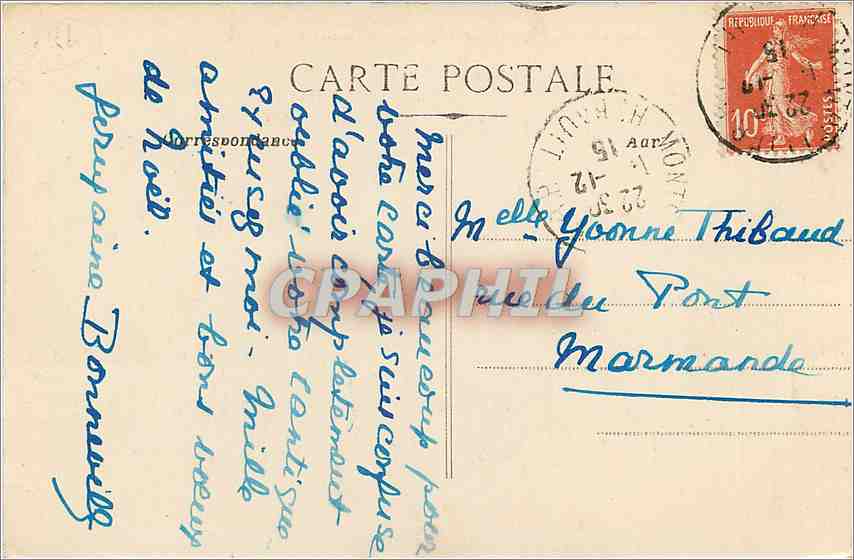 CARTE POSTALE
Correspondance
Merci beaucoup pour
votre carte, je suis confuse
d'avoir complètement
oublié votre cantique
Excusez moi - Mille
amitiés et bons vœux
de Noël.
Bonneville
M elle Yvonne Thibaud
rue du Pont
Marmande
REPUBLIQUE FRANÇAISE
10
POSTES
HERAULT
15
-12
22 30
CPAPHIL